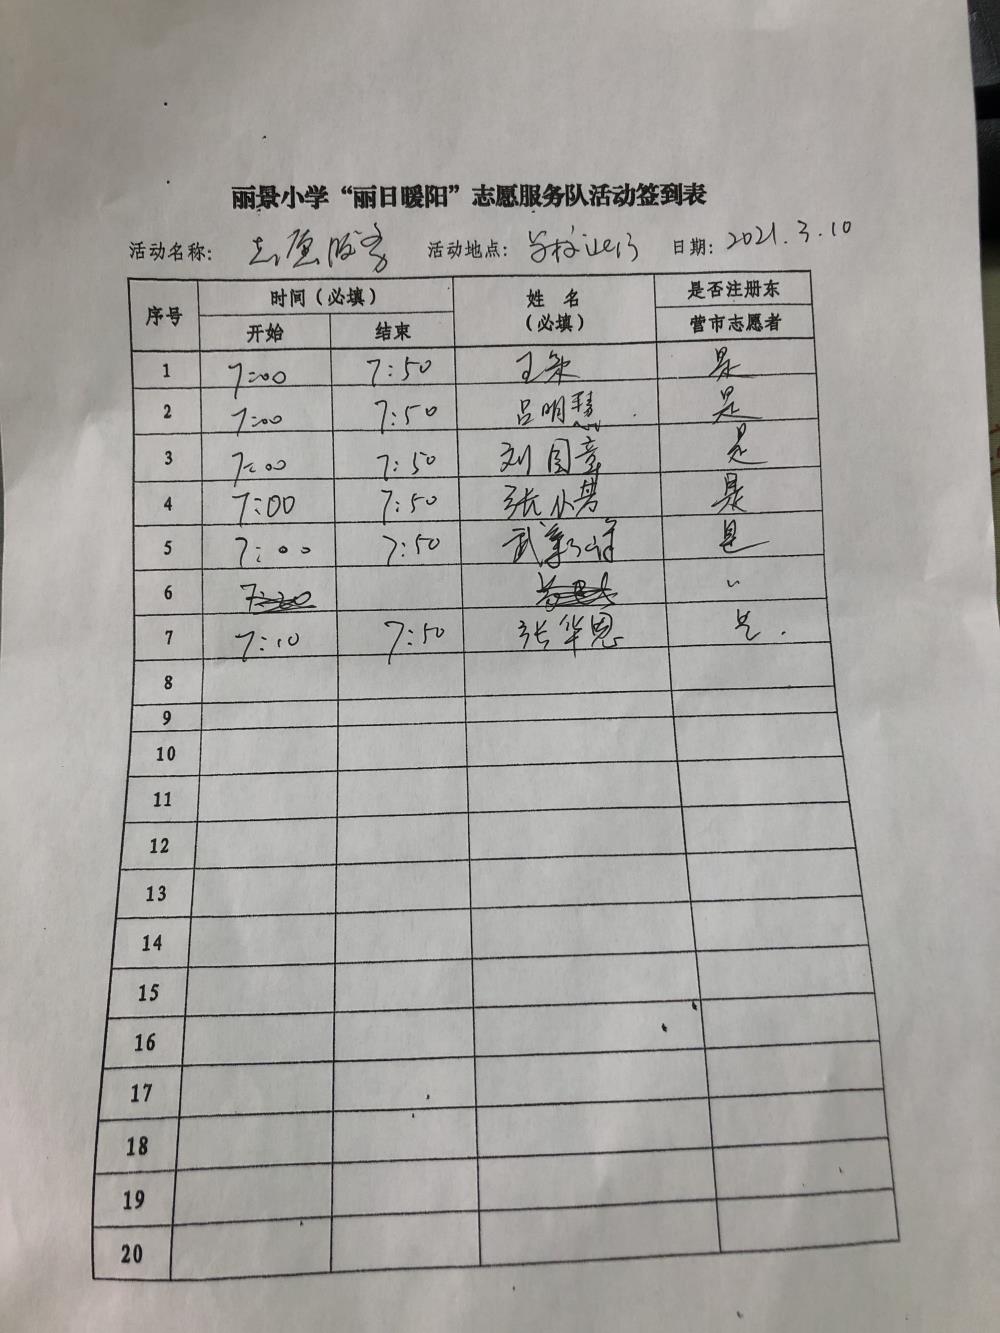 丽景小学“丽日暖阳”志愿服务队活动签到表
活动名称: 志愿服务 活动地点: 学校北门 日期: 2021.3.10
序号 时间(必填) 姓 名 (必填) 是否注册东营市志愿者
开始 结束
1 7:00 7:50 王 是
2 7:00 7:50 吕明慧 是
3 7:00 7:50 刘国章 是
4 7:00 7:50 张小 是
5 7:00 7:50 武 是
6
7 7:10 7:50 张华恩 是.
8
9
10
11
12
13
14
15
16
17
18
19
20